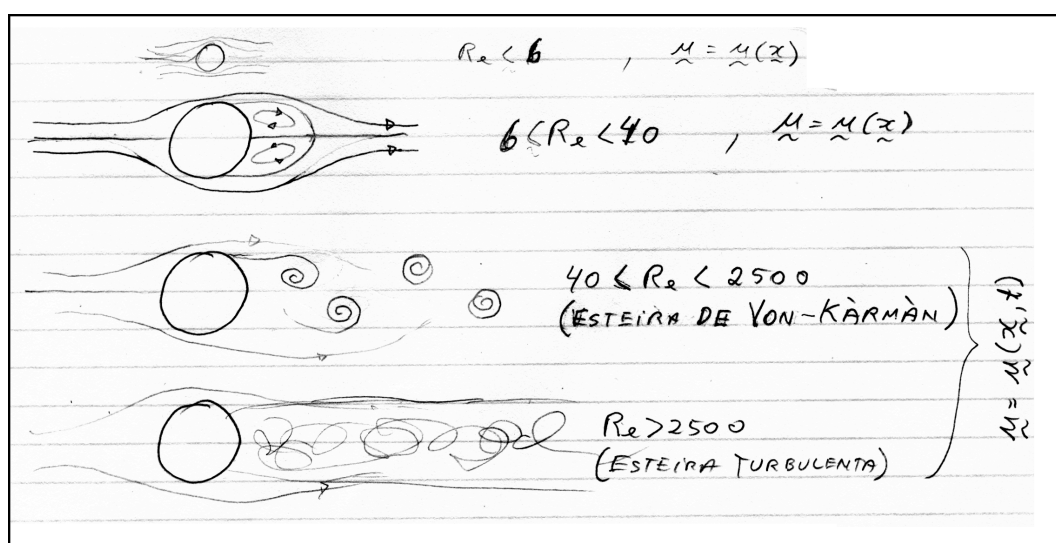 Re < 6 , u = u(x)
6 ≤ Re < 40 , u = u(x)
40 ≤ Re < 2500
(ESTEIRA DE VON-KÀRMÀN)
Re > 2500
(ESTEIRA TURBULENTA)
u = u(x, t)